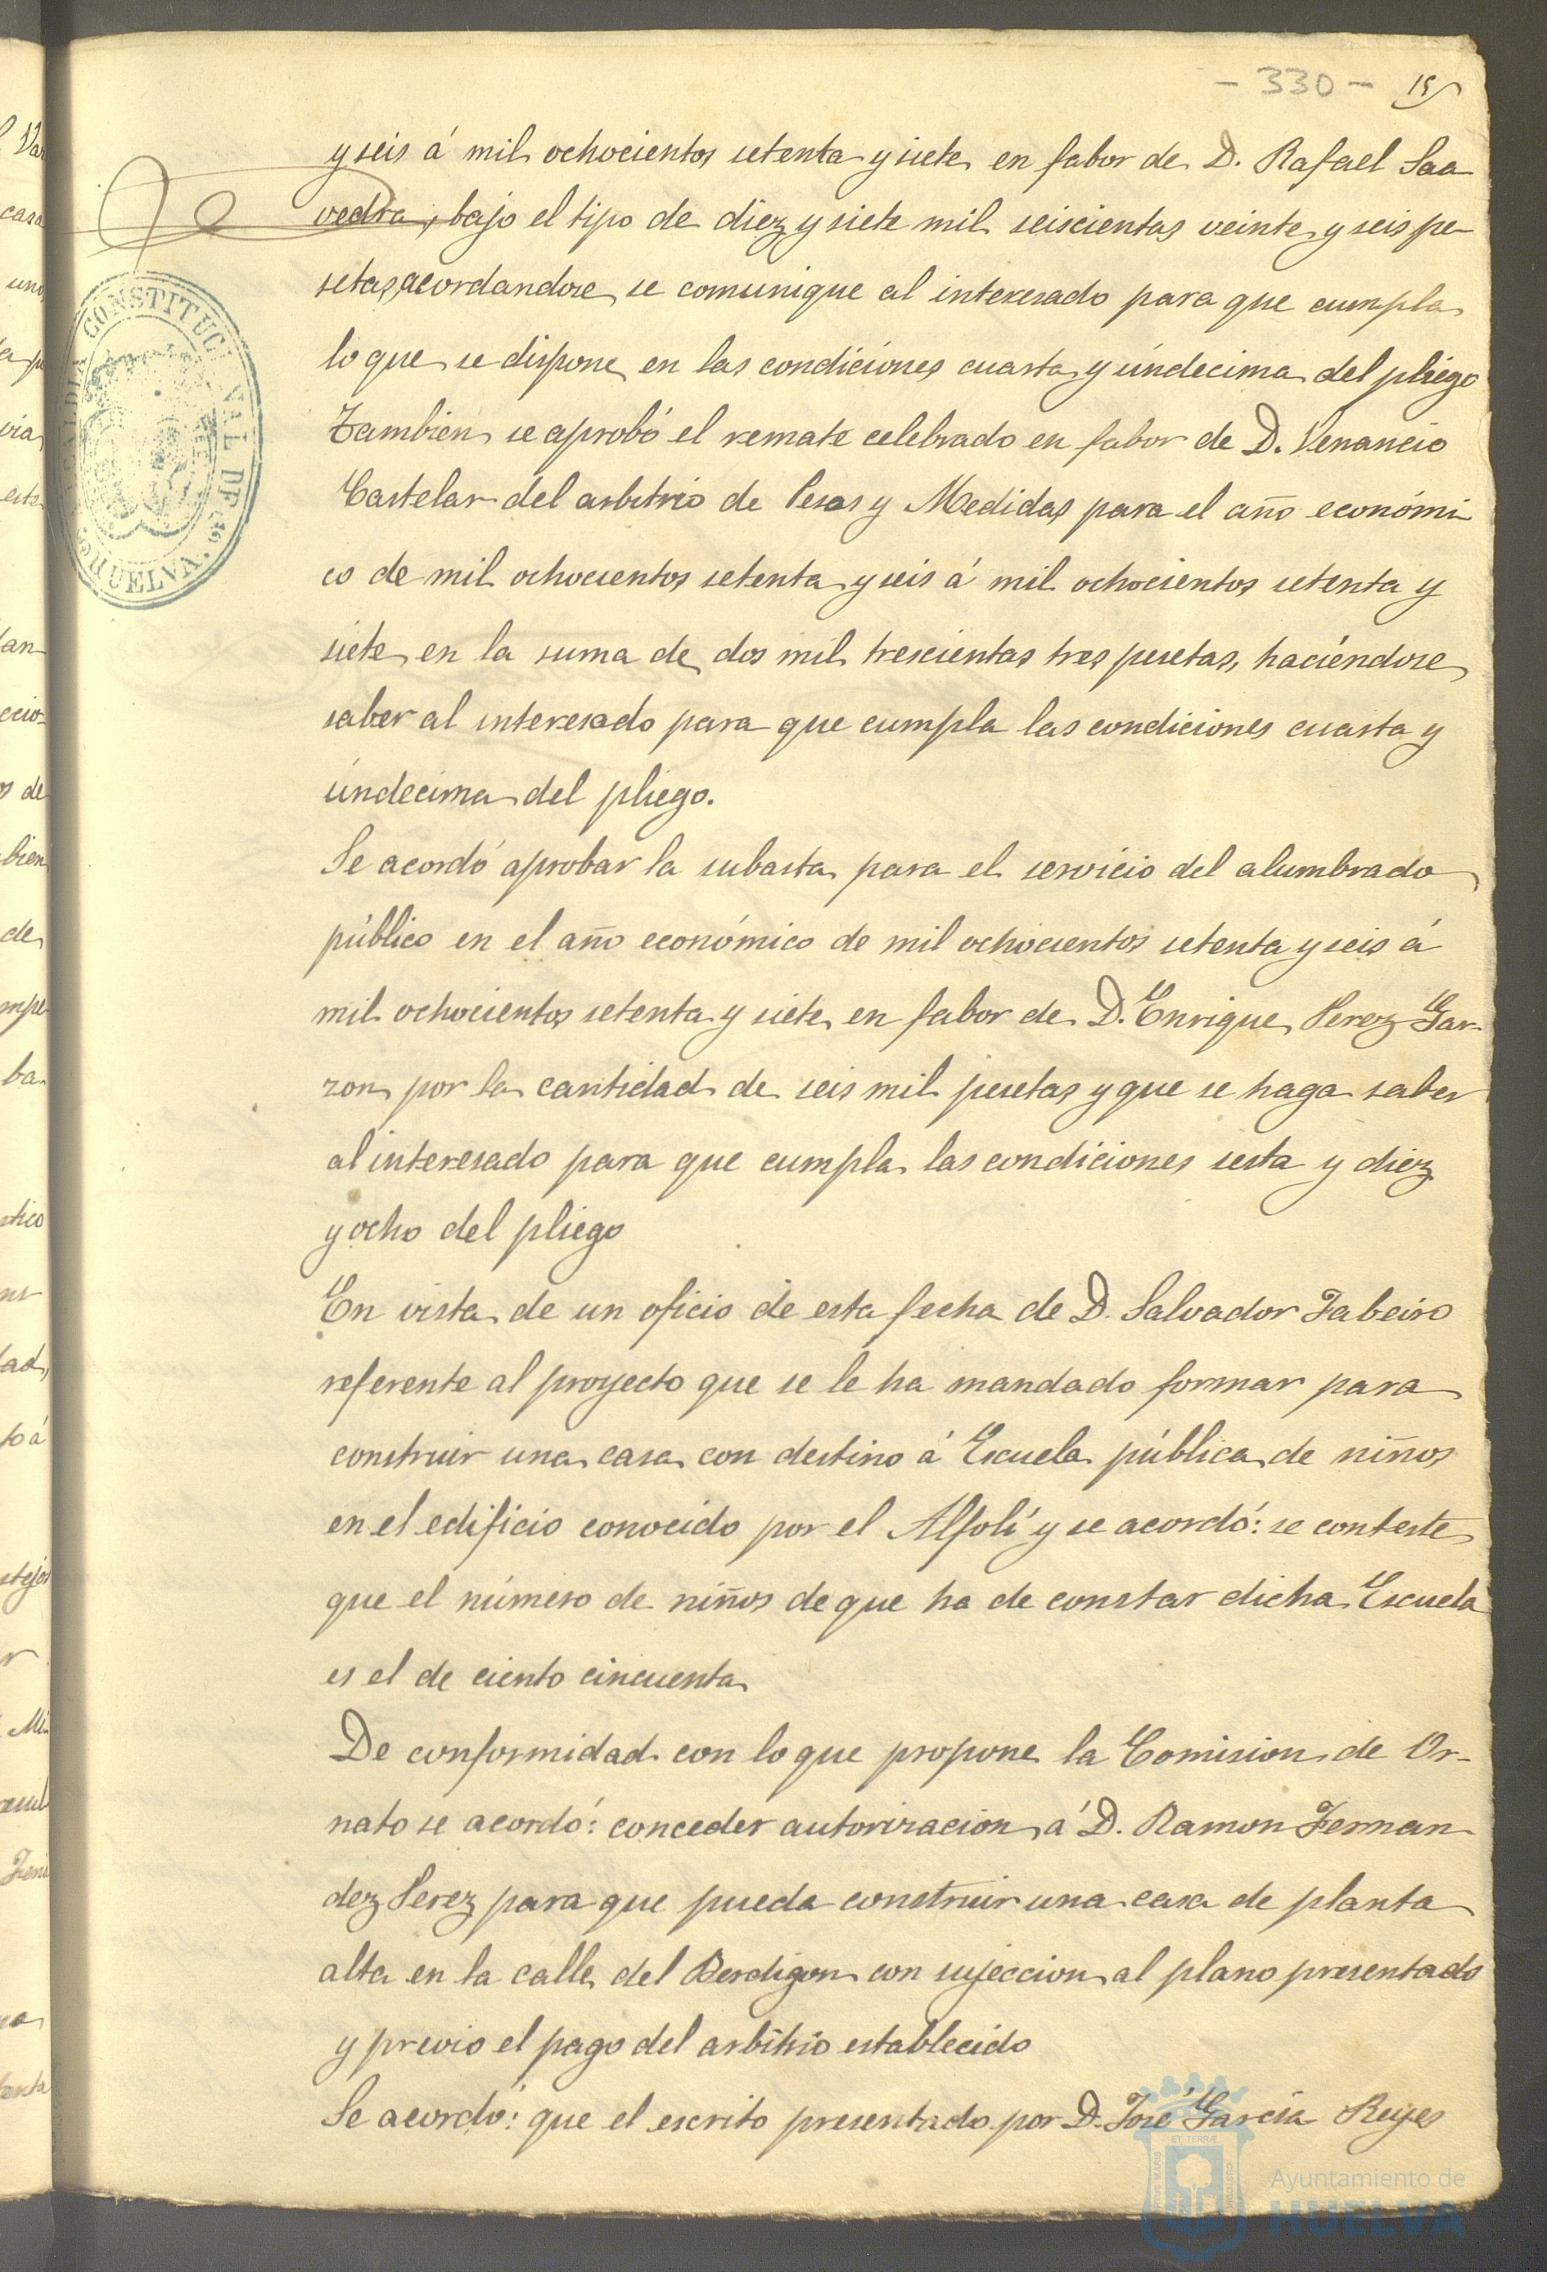 - 330 -
y seis á mil ochocientos setenta y siete en fabor de D. Rafael Saa
vedra, bajo el tipo de diez y siete mil seiscientas veinte y seis pe-
setas, acordandose se comunique al interesado para que cumpla
lo que se dispone en las condiciones cuarta y úndecima del pliego
Tambien se aprobó el remate celebrado en fabor de D. Venancio
Castelar del arbitrio de Pesas y Medidas para el año económi
co de mil ochocientos setenta y seis á mil ochocientos setenta y
siete en la suma de dos mil trescientas tres pesetas, haciéndose
saber al interesado para que cumpla las condiciones cuarta y
úndecima del pliego.
Se acordó aprobar la subasta para el servicio del alumbrado
público en el año económico de mil ochocientos setenta y seis á
mil ochocientos setenta y siete en fabor de D. Enrique Perez Gar-
zon por la cantidad de seis mil pesetas y que se haga saber
al interesado para que cumpla las condiciones sesta y diez
y ocho del pliego
En vista de un oficio de esta fecha de D. Salvador Fabeiro
referente al proyecto que se le ha mandado formar para
construir una casa con destino á Escuela pública de niños
en el edificio conocido por el Alfolí y se acordó: se conteste
que el número de niños de que ha de constar dicha Escuela
es el de ciento cincuenta
De conformidad con lo que propone la Comision de Or-
nato se acordó: conceder autorizacion á D. Ramon Fernan
dez Perez para que pueda construir una casa de planta
alta en la calle del Berdigon con sujeccion al plano presentado
y previo el pago del arbitrio establecido
Se acordó: que el escrito presentado por D. José García Reyes
CONSTITUCI VAL DE
HUELVA.
Ayuntamiento de
HUELVA